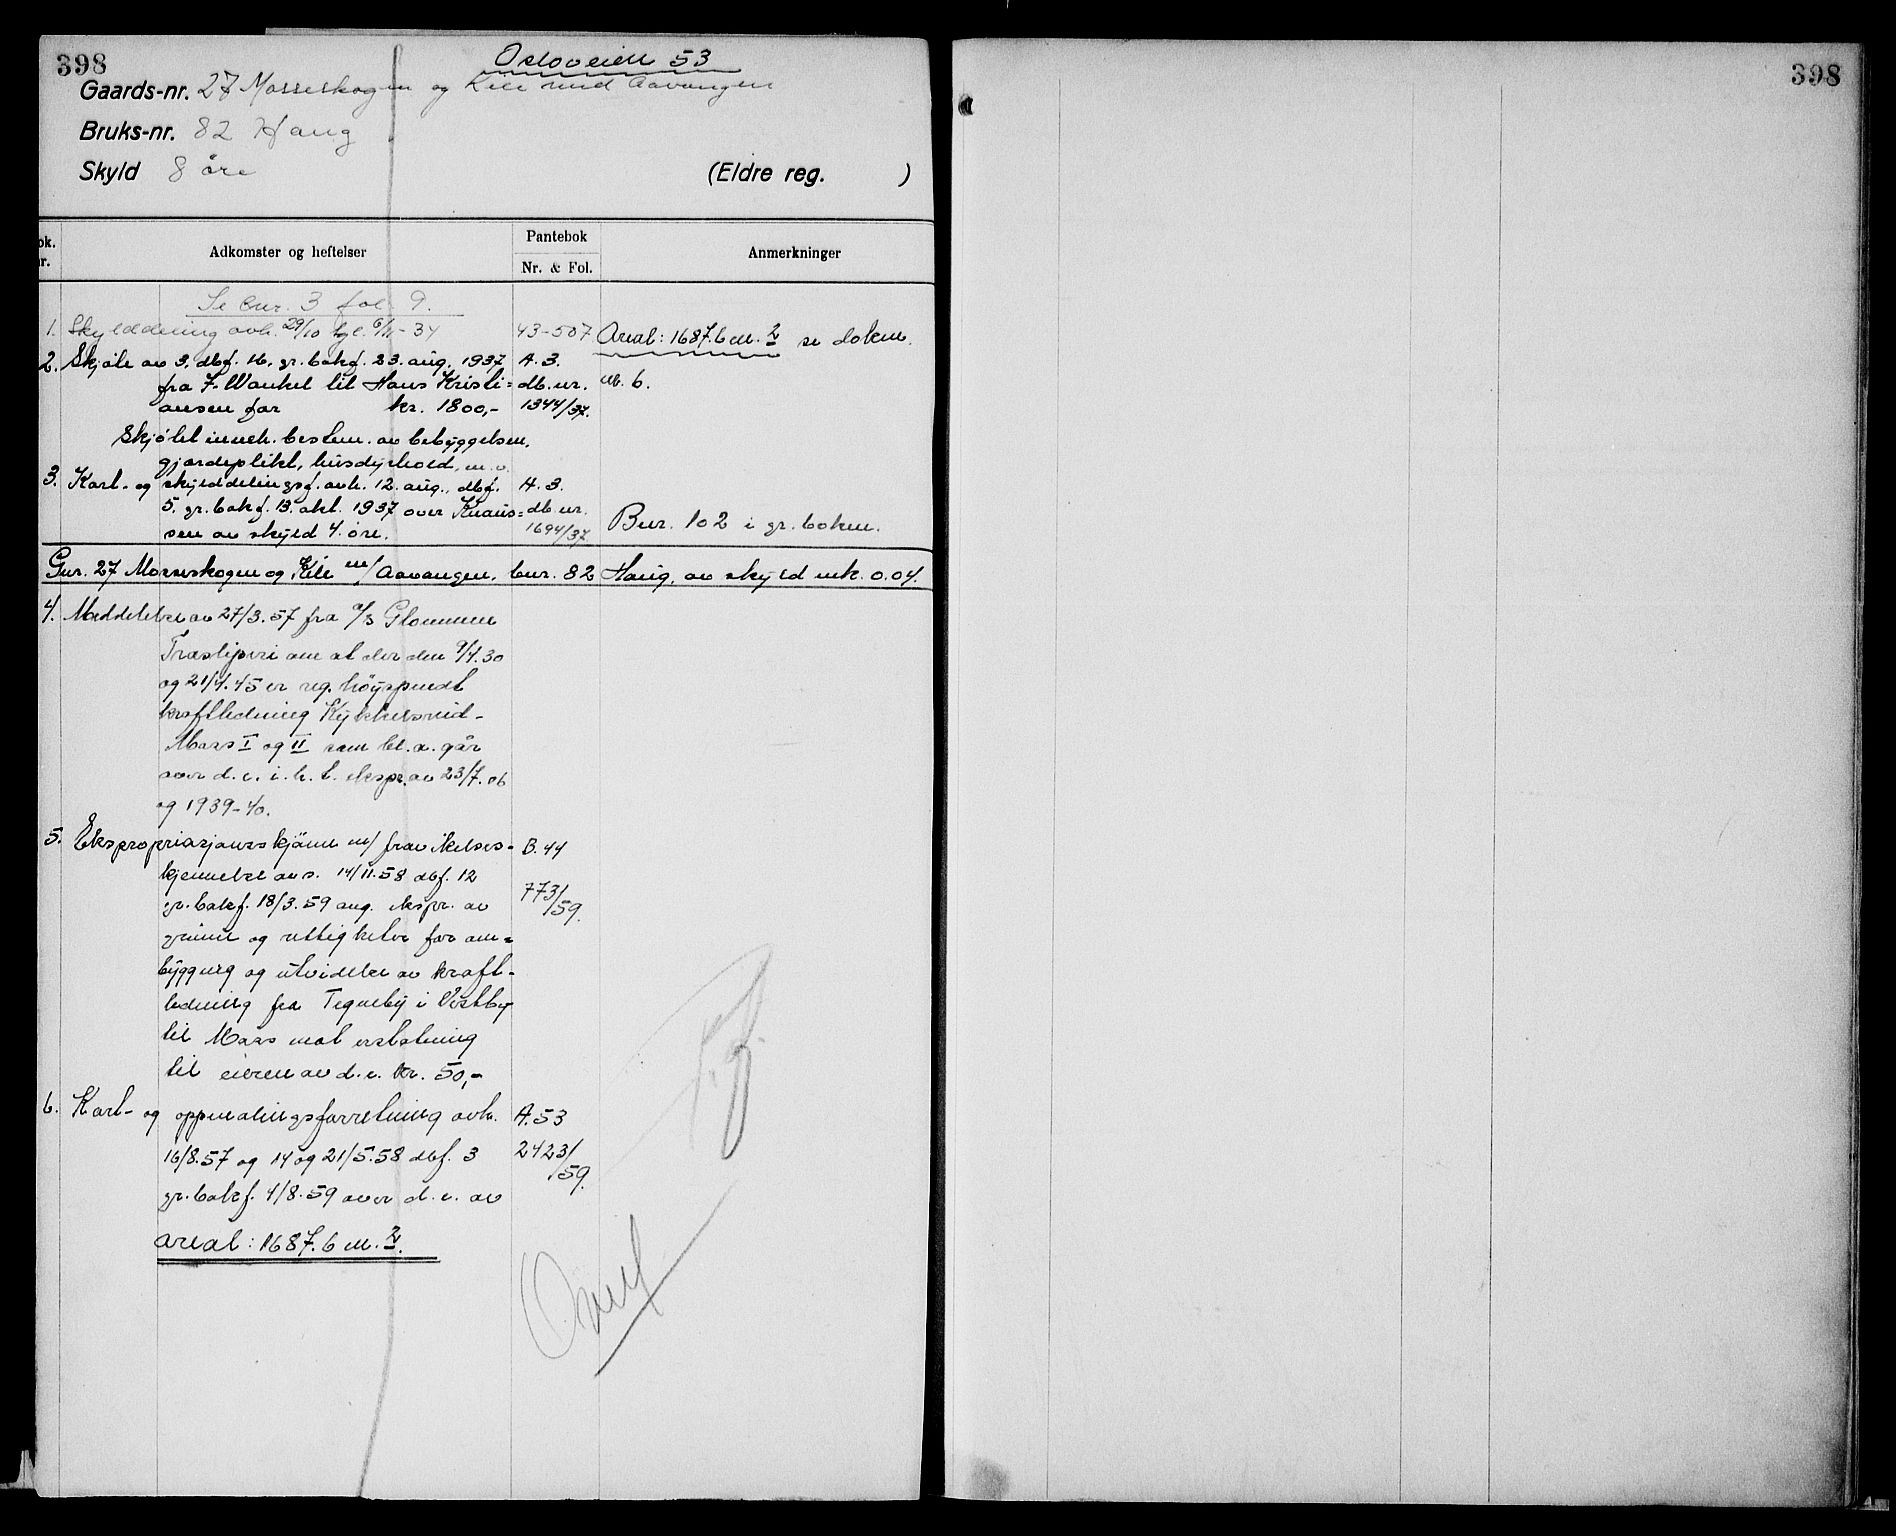 398
Osloveien 53
Gaards-nr. 27 Mosseskogen og Kile med Aavangen
Bruks-nr. 82 Haug
Skyld 8 öre (Eldre reg. )
ok.
r.
Adkomster og heftelser
Pantebok
Nr. & Fol.
Anmerkninger
Se bnr. 3 fol. 9.
1. Skylddeling avh. 29/10 tgl. 6/11-34 43-507 Areal: 1687.6 m.2 se dokm.
2. Skjöte av 3. dbf. 16. gr.bokf. 23. aug. 1937 A. 3. nr. 6.
fra F. Wankel til Hans Kristi= db.nr.
ansen for kr. 1800,- 1344/37.
Skjötet inneh. bestem. av bebyggelsen,
gjerdeplikt, husdyrhold, m.v.
3. Kart- og skylddelingsf. avh. 12. aug., dbf. A. 3.
5. gr.bokf. 13. okt. 1937 over Knaus= db.nr.
sen av skyld 4. öre. 1694/37 Bnr. 102 i gr.boken.
Gnr. 27 Mosseskogen og Kile m/ Aavangen, bnr. 82 Haug, av skyld mk. 0.04.
4. Meddelelse av 27/3.57 fra a/s Glommens
Træsliperi om at der den 9/4.30
og 21/4.45 er reg. höyspendt
kraftledning Kykkelsrud-
Moss I og II som bl.a. går
over d.e. i.h.t. ekspr. av 23/7.06
og 1939-40.
5. Ekspropriasjonsskjönn m/ fravikelses- B. 44
kjennelse avs. 14/11.58 dbf. 12
gr.bokf. 18/3.59 ang. ekspr. av 773/59.
grunn og rettigheter for om=
bygging og utvidelse av kraft-
ledning fra Tegneby i Vestby
til Moss mot erstatning
til eieren av d.e. kr. 50,-
6. Kart- og oppmålingsforretning avh. A. 53
16/8.57 og 14 og 21/5.58 dbf. 3 2423/59.
gr.bokf. 4/8.59 over d.e. av
areal: 1687.6 m.2.
398